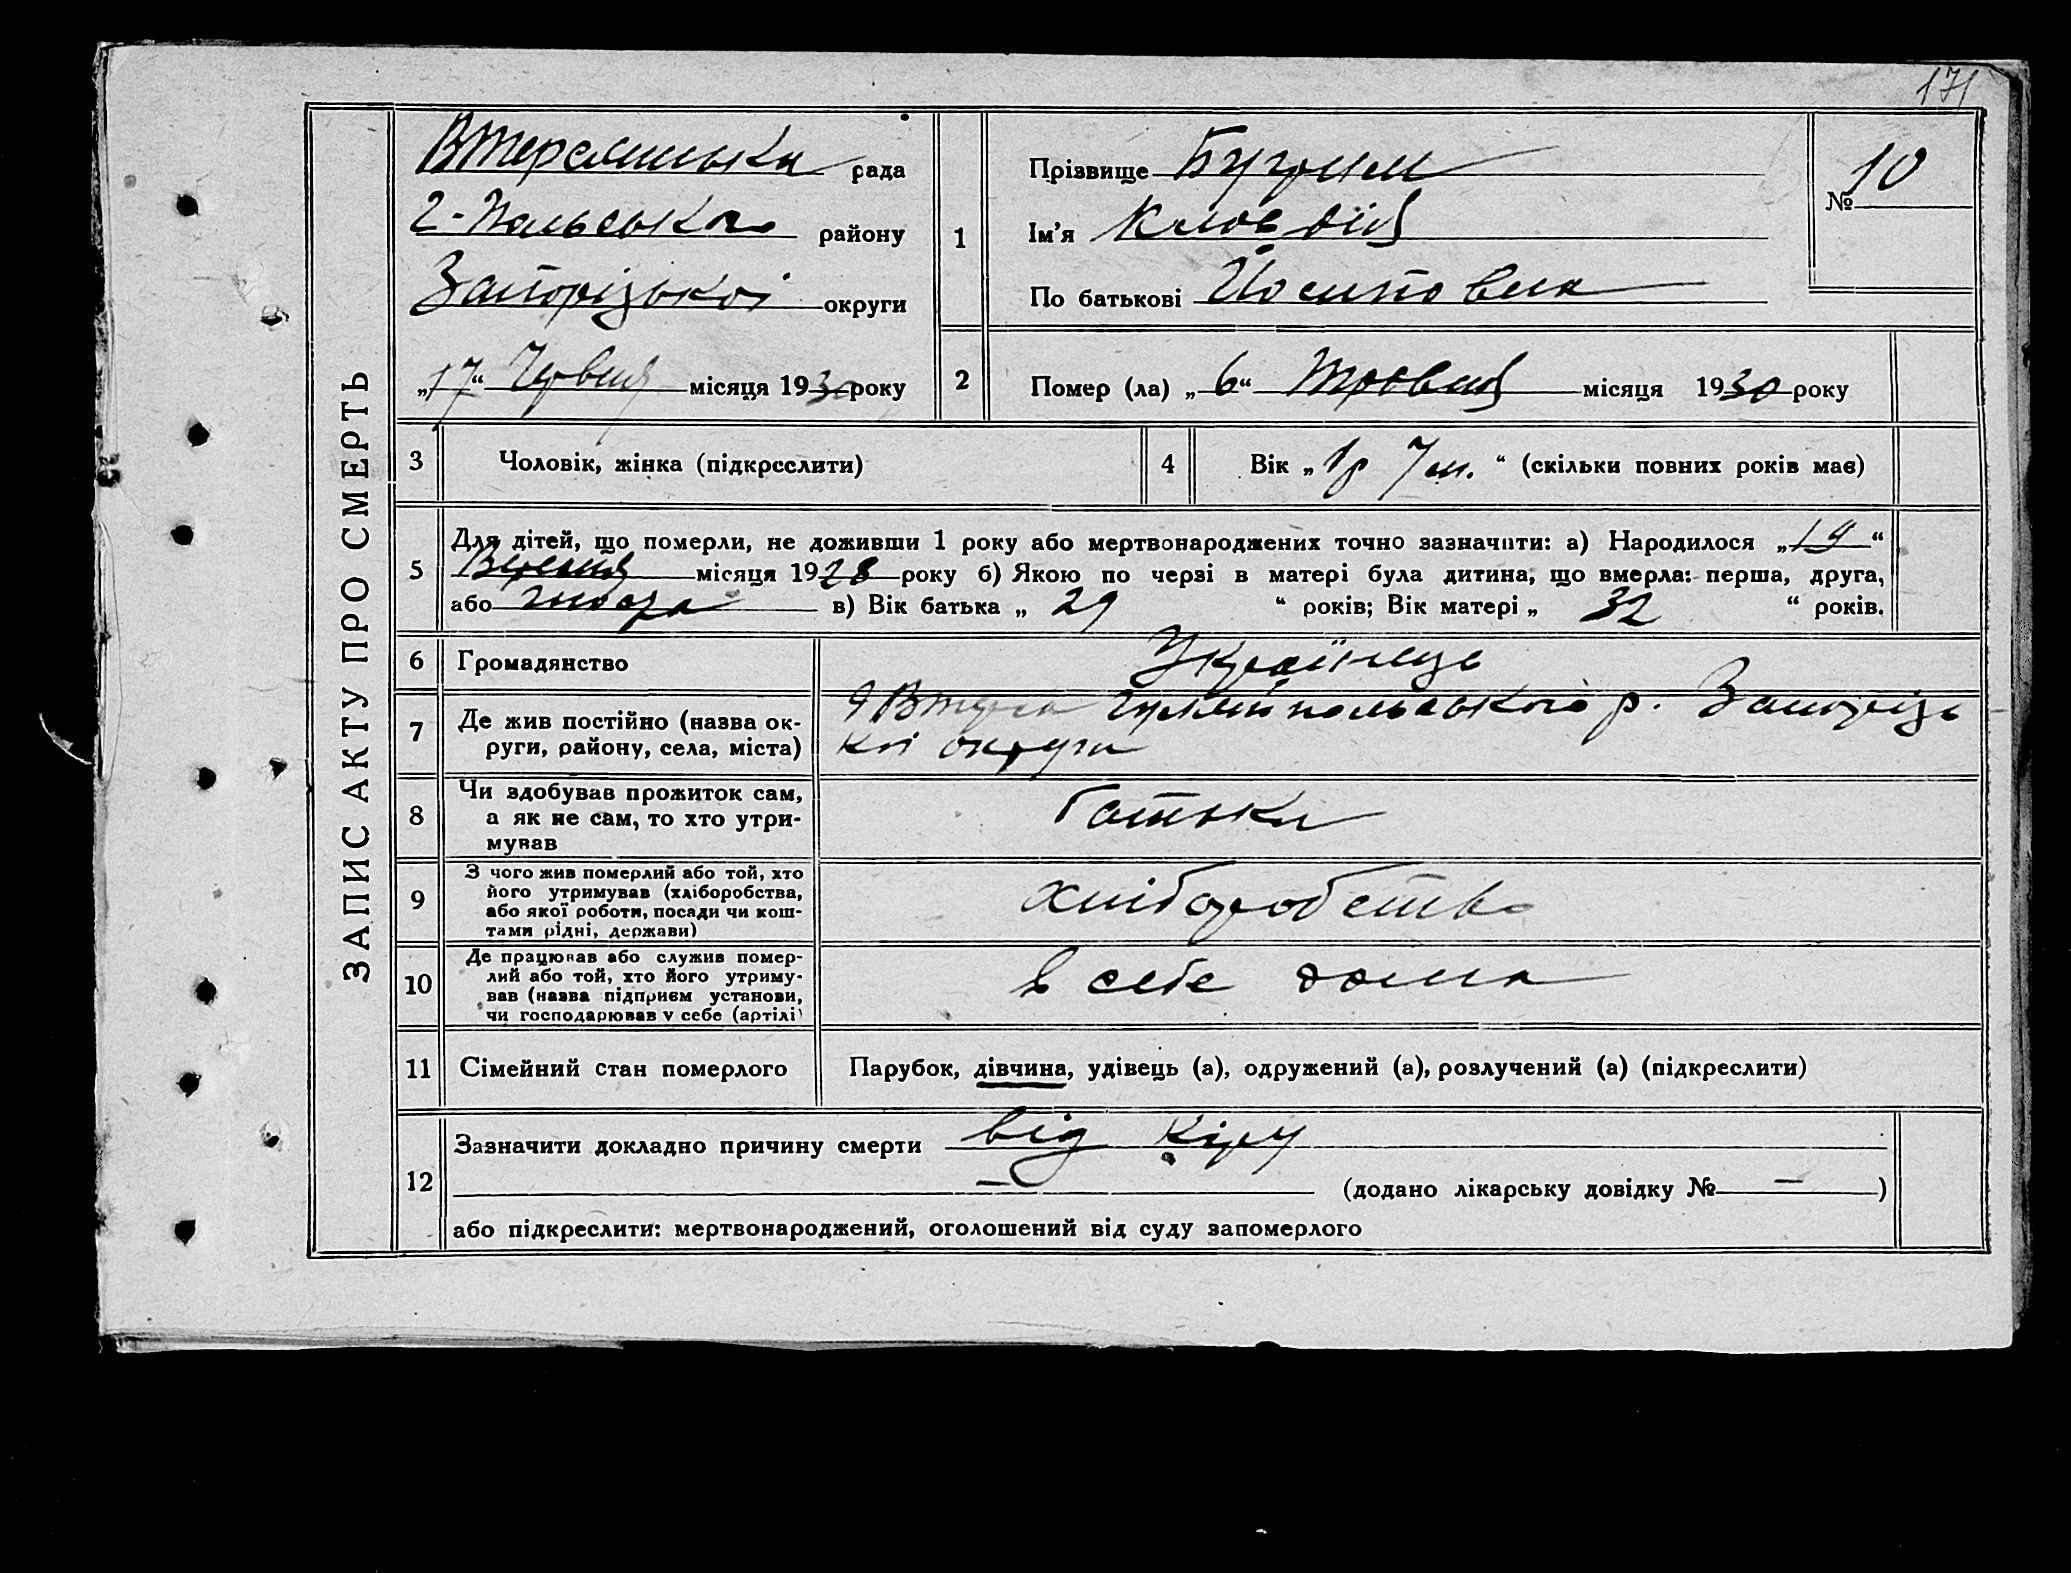 171
ЗАПИС АКТУ ПРО СМЕРТЬ
рада
2-Польського району
Запорізької округи
„17“ Червня місяця 1930 року
1
Прізвище
Ім'я Клавдія
По батькові Йосиповна
№ 10
2
Помер (ла) „6“ Травня місяця 1930 року
3
Чоловік, жінка (підкреслити)
4
Вік „1р 7м.“ (скільки повних років має)
5
Для дітей, що померли, не доживши 1 року або мертвонароджених точно зазначити: а) Народилося „19“
Вересня місяця 1928 року б) Якою по черзі в матері була дитина, що вмерла: перша, друга,
або в) Вік батька „29“ років; Вік матері „32“ років.
6
Громадянство
Українець
7
Де жив постійно (назва ок-
руги, району, села, міста)
Гуляйпольського р. Запорізь
кої округи
8
Чи здобував прожиток сам,
а як не сам, то хто утри-
мував
батьки
9
З чого жив померлий або той, хто
його утримував (хліборобства,
або якої роботи, посади чи кош-
тами рідні, держави)
хліборобство
10
Де працював або служив помер-
лий або той, хто його утриму-
вав (назва підприєм установи,
чи господарював у себе (артілі)
в себе дома
11
Сімейний стан померлого
Парубок, дівчина, удівець (а), одружений (а), розлучений (а) (підкреслити)
12
Зазначити докладно причину смерти від кіру
— (додано лікарську довідку № — )
або підкреслити: мертвонароджений, оголошений від суду запомерлого